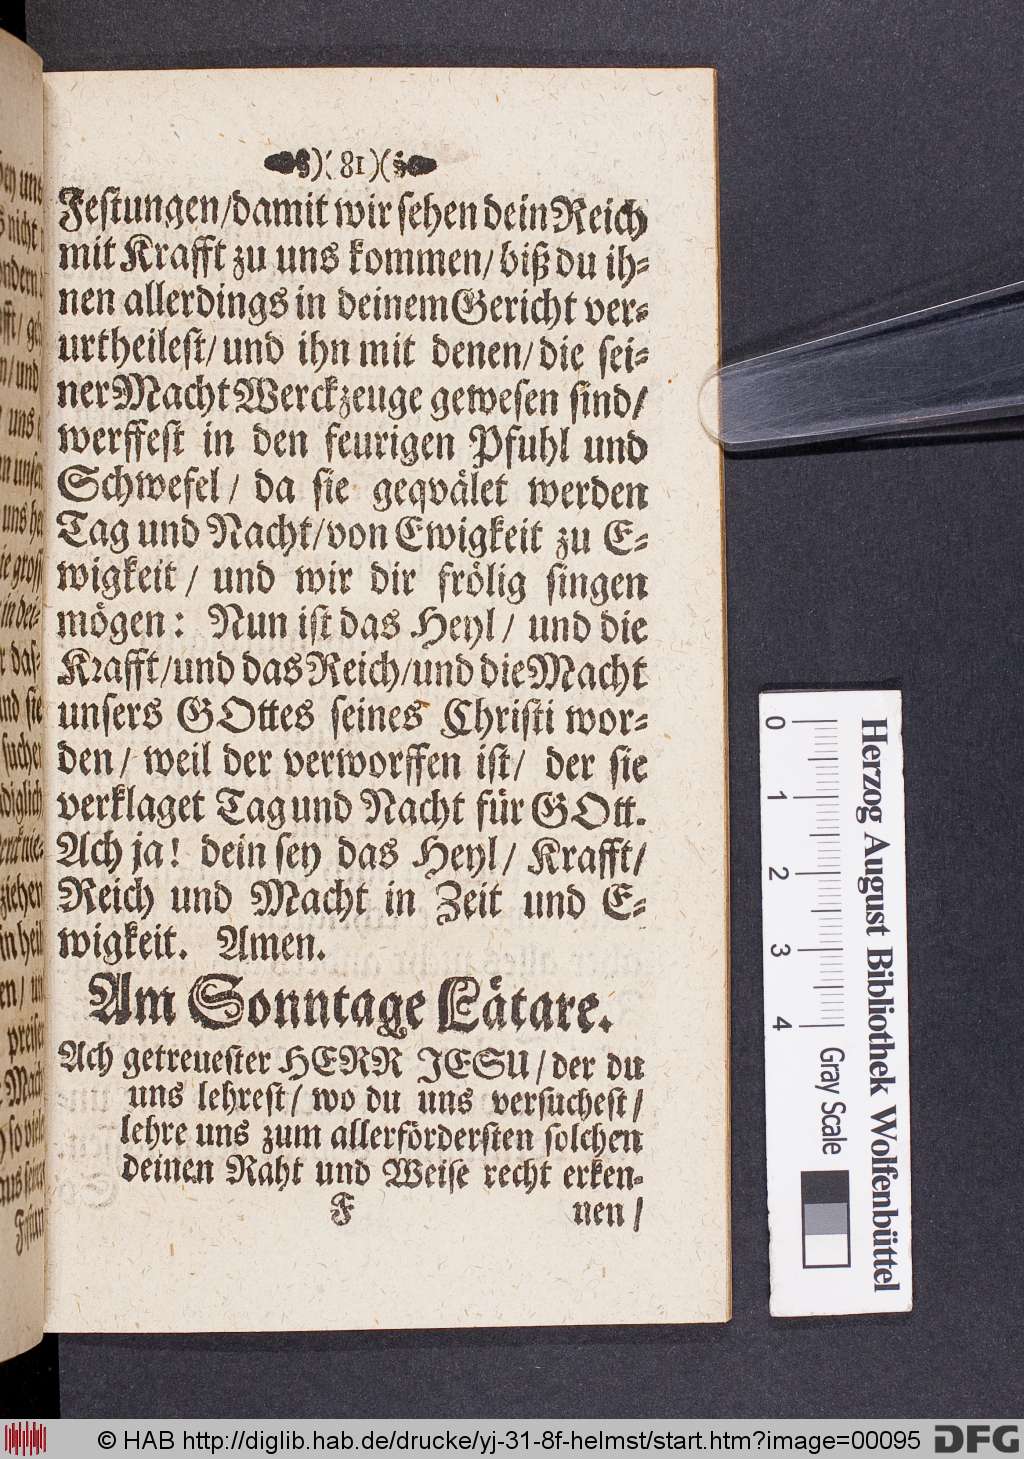 )( 81 )(
Festungen/damit wir sehen dein Reich
mit Krafft zu uns kommen/ biß du ih⸗
nen allerdings in deinem Gericht ver⸗
urtheilest/ und ihn mit denen/ die sei⸗
ner Macht Werckzeuge gewesen sind/
werffest in den feurigen Pfuhl und
Schwefel / da sie geqvälet werden
Tag und Nacht/von Ewigkeit zu E⸗
wigkeit / und wir dir frölig singen
mögen : Nun ist das Heyl / und die
Krafft/und das Reich/und die Macht
unsers GOttes seines Christi wor⸗
den / weil der verworffen ist/ der sie
verklaget Tag und Nacht für GOtt.
Ach ja! dein sey das Heyl/ Krafft/
Reich und Macht in Zeit und E⸗
wigkeit. Amen.
Am Sonntage Lätare.
Ach getreuester HERR JESU/der du
uns lehrest/ wo du uns versuchest/
lehre uns zum allerfördersten solchen
deinen Raht und Weise recht erken-
F nen /
Herzog August Bibliothek Wolfenbüttel
0 1 2 3 4 Gray Scale
© HAB http://diglib.hab.de/drucke/yj-31-8f-helmst/start.htm?image=00095 DFG